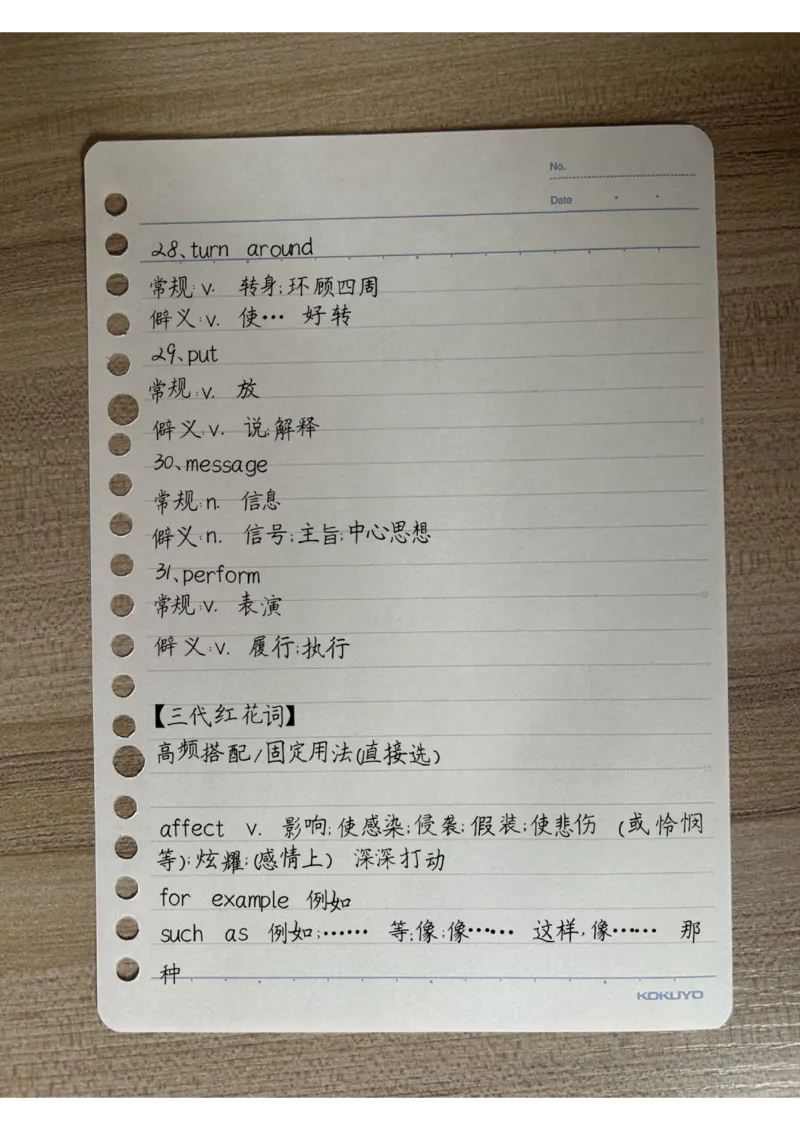 No.
Date
28、turn around
常规:v. 转身;环顾四周
僻义:v. 使… 好转
29、put
常规:v. 放
5
僻义:v. 说;解释
30、message
常规:n. 信息
僻义:n. 信号;主旨;中心思想
31、perform
10
常规:v. 表演
僻义:v. 履行;执行
【三代红花词】
高频搭配/固定用法(直接选)
15
affect v. 影响;使感染;侵袭;假装;使悲伤 (或怜悯
等);炫耀;(感情上) 深深打动
for example 例如
such as 例如;…… 等;像;像…… 这样,像…… 那
种
KOKUYO